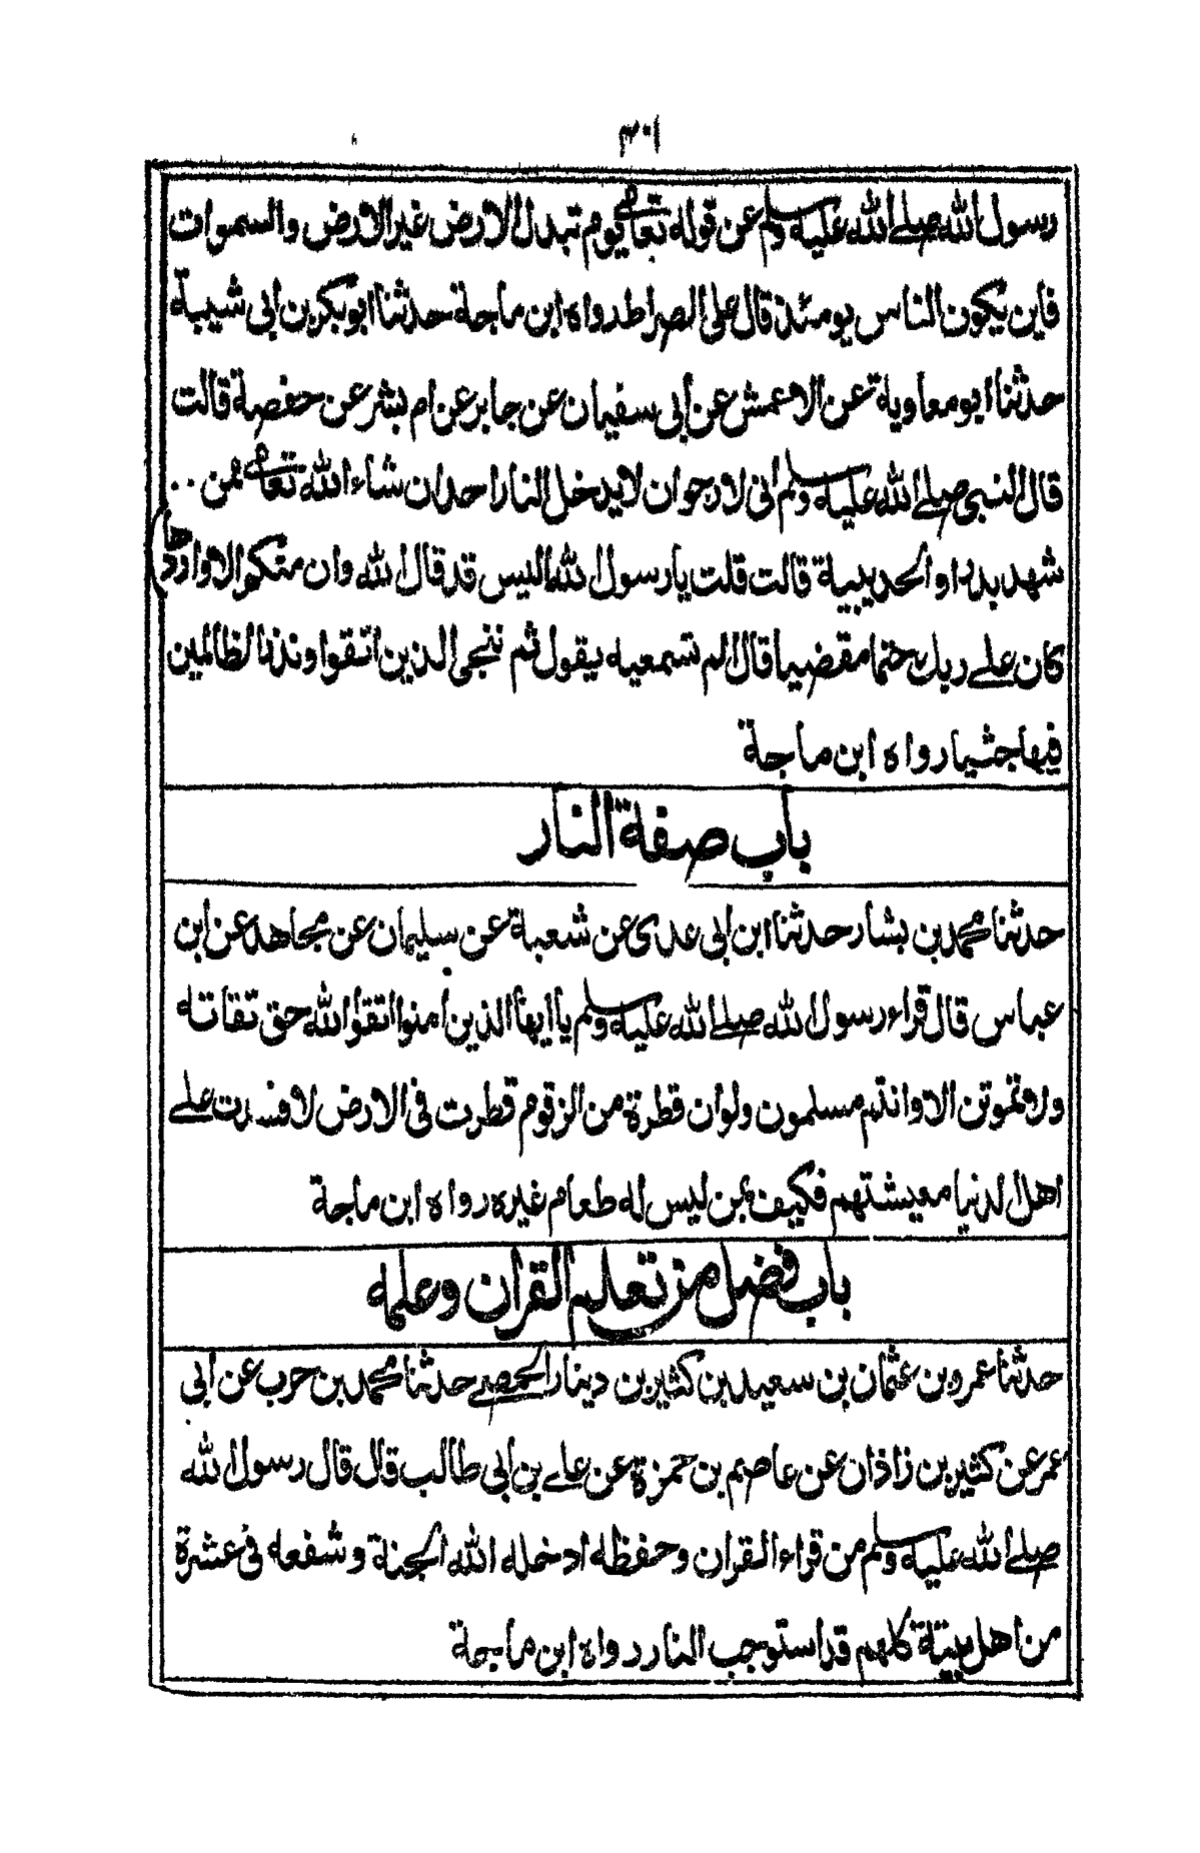 ٣٠١
رسول الله صلے الله عليه وسلم عن قوله تعالے يوم تبدل الارض غير الارض والسموات
فاين يكون الناس يومئذ قال على الصراط رواه ابن ماجة حدثنا ابو بكر بن ابى شيبة
حدثنا ابو معاوية عن الاعمش عن أبى سفيان عن جابر عن ام بشر عن حفصة قالت
قال النبى صلے الله عليه وسلم انى لارجو ان لايدخل النار احد ان شاء الله تعالے ممن
شهد بدرا والحديبية قالت قلت يا رسول الله اليس قد قال الله وان منكم الا واردها
كان علے ربك حتما مقضيا قال الم تسمعيه يقول ثم ننجى الذين اتقوا ونذر الظالمين
فيها جثيا رواه ابن ماجة
باب صفة النار
حدثنا محمد بن بشار حدثنا ابن ابى عدى عن شعبة عن سليمان عن مجاهد عن ابن
عباس قال قراء رسول الله صلے الله عليه وسلم يا ايها الذين أمنوا اتقوا الله حق تقاته
ولا تموتن الا وانتم مسلمون ولو ان قطرة من الزقوم قطرت فى الارض لافسدت علے
اهل الدنيا معيشتهم فكيف بمن ليس له طعام غيره رواه ابن ماجة
باب فضل من تعلم القران وعلمه
حدثنا عمرو بن عثمان بن سعيد بن كثير بن دينار الحمصے حدثنا محمد بن حرب عن ابى
عمر عن كثير بن زاذان عن عاصم بن حمزة عن علے بن ابى طالب قال قال رسول الله
صلے الله عليه وسلم من قراء القران وحفظه ادخله الله الجنة وشفعه فى عشرة
من اهل بيتة كلهم قد استوجب النار رواه ابن ماجة